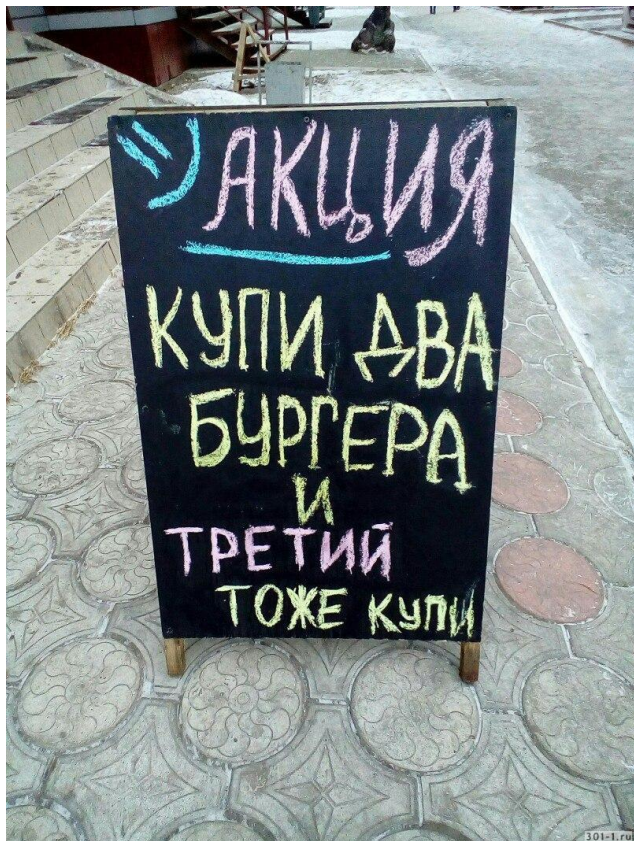 АКЦИЯ
КУПИ ДВА
БУРГЕРА
И
ТРЕТИЙ
ТОЖЕ КУПИ
301-1.ru